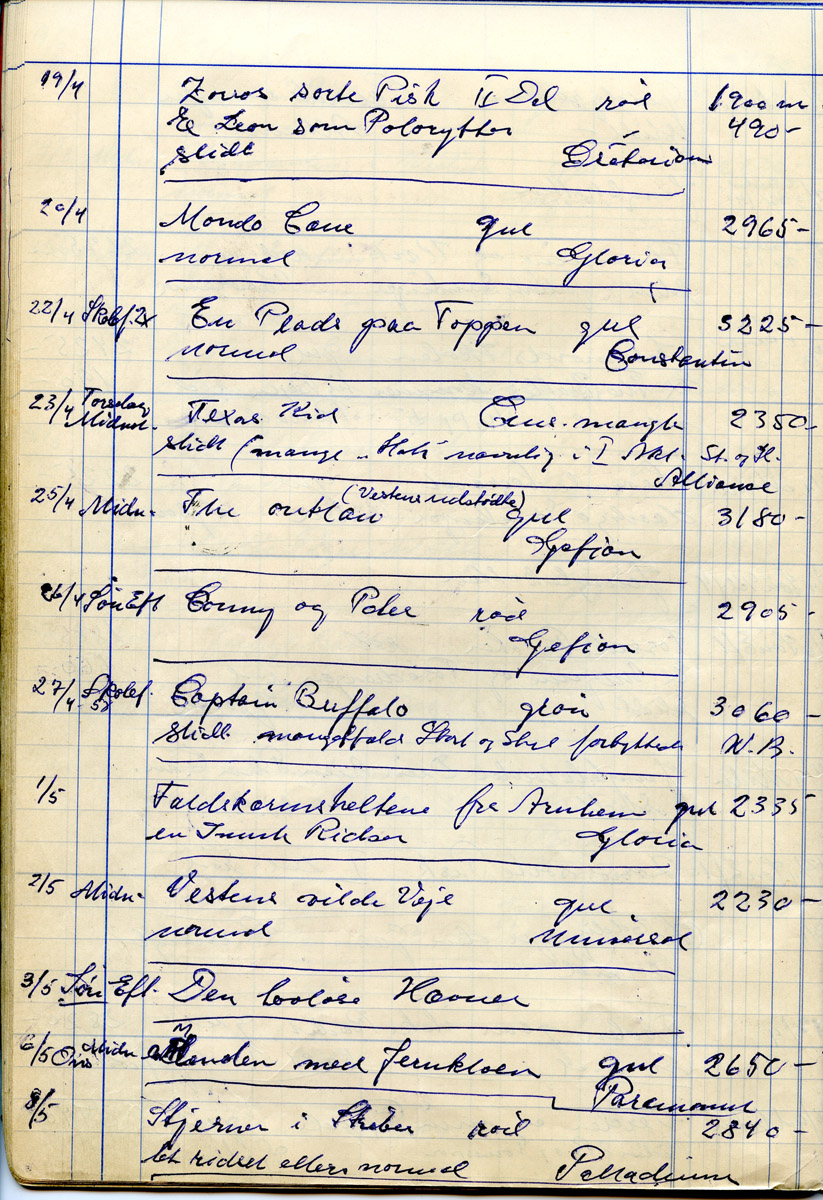 19/4 Zorros sorte Pisk II Del rød 1900 m
Leon som Polorytter 490-
slidt
20/4 Mondo Cane gul 2965-
normal Gloria
22/4 Skolef. En Plads paa Toppen gul 3225-
normal Constantin
23/4 Torsdag Texas Kid 2350-
Midn. slidt (mange navnlig i I Akt. St. og Sl.
Alliance
(Vestens udstødte)
25/4 Midn- The outlaw gul 3180-
" Gefion
26/4 Søn Eft Conny og Peter rød 2905-
Gefion
27/4 Skolef. Captain Buffalo grøn 3060-
slidt mangfold Start og Slut forbyttet W.B.
1/5 Faldskærmsheltene fra Arnhem gul 2335
en Ridser Gloria
2/5 Midn- Vestens vilde Veje gul 2230-
normal Universal
3/5 Søn Eft. Den lovløse Hævner
6/5 Midn Manden med Jernkloen gul 2650-
Paramount
8/5 Stjerner i Striber rød 2840-
let ridset ellers normal Palladium